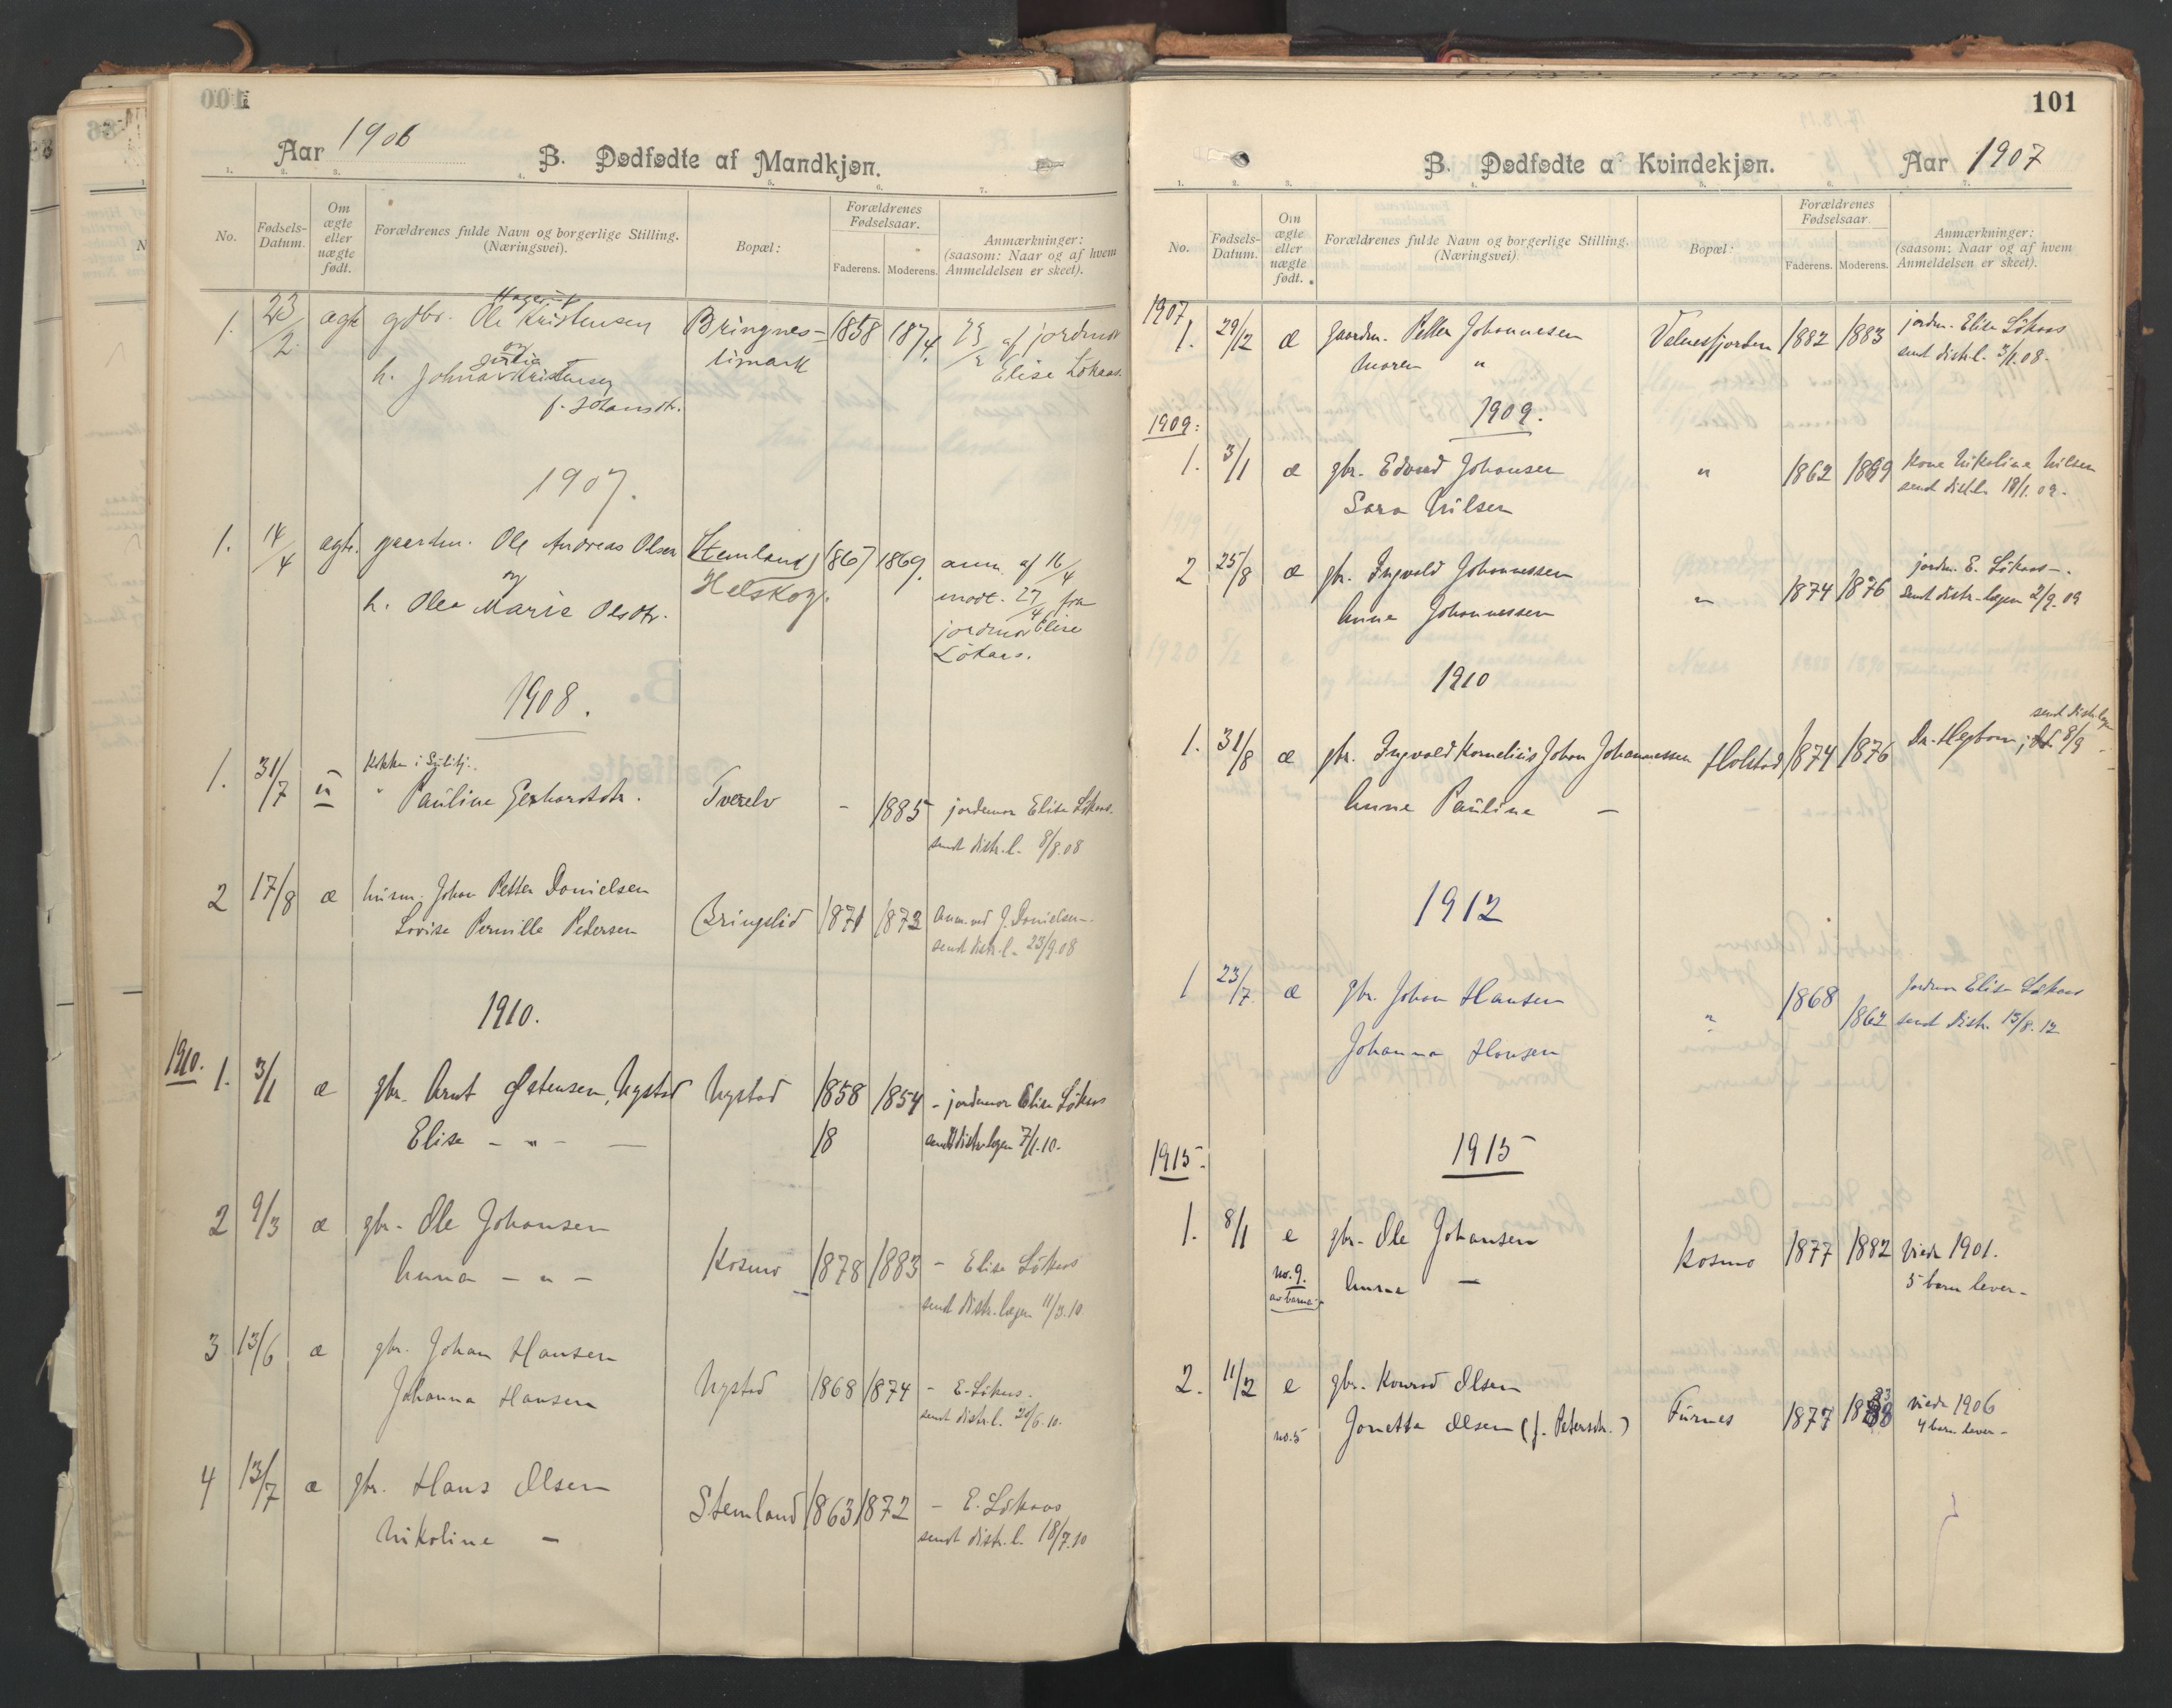 Aar 1906 B. Dødfødte af Mandkjøn.
No. Fødsels-Datum. Om ægte eller uægte født. Forældrenes fulde Navn og borgerlige Stilling. (Næringsvei). Bopæl: Forældrenes Fødselsaar. Faderens. Moderens. Anmærkninger: (saasom: Naar og af hvem Anmeldelsen er skeet).
1. 23/2 ægte gdbr. Ole Kristensen Bringnes- 1858 1874. 23/2 af jordmor
h. Johna Kristensen limark Elise Løkaas.
f. Johansdtr.
1907.
1. 14/4 ægte. gaardm. Ole Andreas Olsen Stemland, 1867 1869. anm. af 16/4
og
h. Olea Marie Olsdtr. Helskog. modt. 27/4 fra
jordmor Elise
Løkaas.
1908.
Kokke i
1. 31/7 u " Pauline Gerhardsdtr. Tverelv - 1885 jordemor Elise Løkaas.
sendt distr.l. 8/8.08
2 17/8 æ husm. Johan Petter Danielsen
Lovise Pernille Pedersen Bringslid 1871 1873 Anm. ved J. Danielsen-.
sendt distr.l. 23/9.08
1910.
1910. 1. 3/1 æ gbr. Arnt Østensen, Nystad Nystad 1858 1854 - jordemor Elise Løkaas
Elise - " - — 18 sendt distr.lægen 7/1.10.
2 9/3 æ gbr. Ole Johansen
Anna - " - Kosmo 1878 1883 - Elise Løkaas
sendt distr.lægen 11/3.10
3 13/6 æ gbr. Johan Hansen
Johanna Hansen Nystad 1868 1874 - E. Løkaas.
sendt distr.l. 20/6.10.
4 13/7 æ gbr. Hans Olsen
Nikoline - Stemland 1863 1872 - E. Løkaas
sendt distr.l. 18/7.10
101
B. Dødfødte a Kvindekjøn. Aar 1907
No. Fødsels-Datum. Om ægte eller uægte født. Forældrenes fulde Navn og borgerlige Stilling. (Næringsvei). Bopæl: Forældrenes Fødselsaar. Faderens. Moderens. Anmærkninger: (saasom: Naar og af hvem Anmeldelsen er skeet).
1907
1. 29/12 æ gaardm. Petter Johannesen Valnesfjorden 1882 1883 jordm. Elise Løkaas
Maren " sendt distr.l. 3/1.08.
1909: 1909.
1. 3/1 æ gbr. Edvard Johansen " 1862 1869 Kone Nikoline Nilsen
Sara Nilsen sendt distr.l. 18/1.09.
2 25/8 æ gbr. Ingvald Johannessen jordm. E. Løkaas-.
Anne Johannessen " 1874 1876 sendt distr.lægen 2/9.09
1910
sendt distr.lægen
1. 31/8 æ gbr. Ingvald Kornelius Johan Johannessen Holstad 1874 1876 8/9
Anne Pauline -
1912
1 23/7. æ gbr. Johan Hansen " 1868 Jordmor Elise Løkaas
Johanna Hansen 1862 sendt distr. 13/8.12
1915. 1915
1. 8/1 e gbr. Ole Johansen Kosmo 1877 1882 Viede 1901.
no. 9. av barna: Anna — 5 barn lever-
2. 11/2 e gbr. Konrad Olsen Furnes 1877 1883 viede 1906
no. 5 Jonetta Olsen (f. Petersdtr.) 4 barn lever-